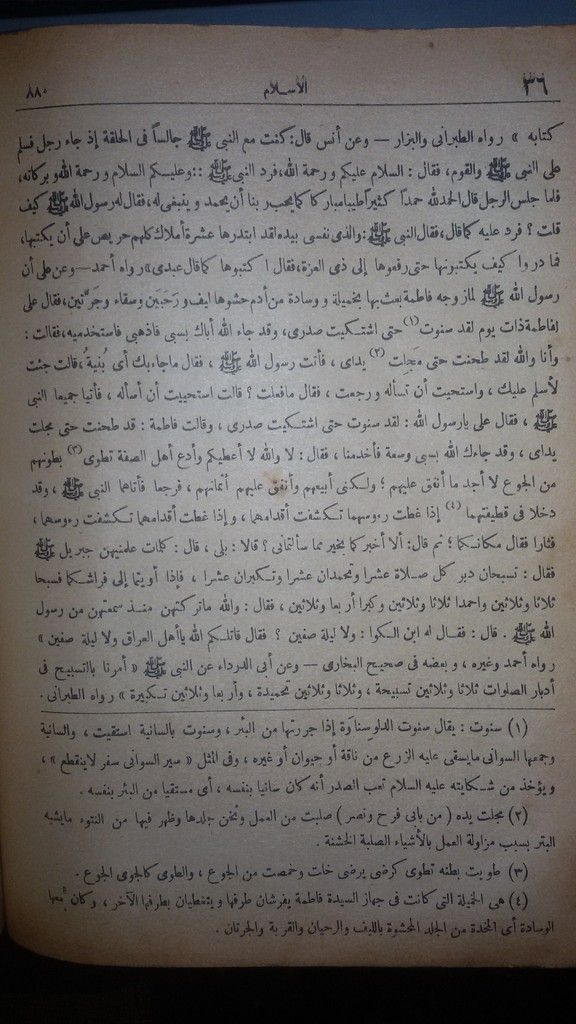 ٣٦ الأسلام ٨٨٠
كتابه » رواه الطبرانى والبزار — وعن أنس قال: كنت مع النبى ﷺ جالساً فى الحلقة إذ جاء رجل فسلم
على النبى ﷺ والقوم، فقال : السلام عليكم ورحمة الله، فرد النبى ﷺ :: وعليكم السلام ورحمة الله وبركاته،
فلما جلس الرجل قال الحمد لله حمداً كثيراً طيبا مباركا كما يحب ربنا أن يحمد وينبغى له، فقال له رسول الله ﷺ كيف
قلت ؟ فرد عليه كما قال، فقال النبى ﷺ : والذى نفسى بيده لقد ابتدرها عشرة أملاك كلهم حريص على أن يكتبها،
فما دروا كيف يكتبونها حتى رفعوها إلى ذى العزة، فقال اكتبوها كما قال عبدى» رواه أحمد — وعن على أن
رسول الله ﷺ لما زوجه فاطمة بعث بها بخميلة ووسادة من أدم حشوها ليف ورحيين وسقاء وجرتين، فقال على
لفاطمة ذات يوم لقد سنوت (١) حتى اشتكيت صدرى، وقد جاء الله أباك بسبى فاذهبى فاستخدميه، فقالت :
وأنا والله لقد طحنت حتى مجلت (٢) يداى ، فأتت رسول الله ﷺ ، فقال ماجاء بك أى بُنية، قالت جئت
لأسلم عليك ، واستحيت أن تسأله ورجعت ، فقال مافعلت ؟ قالت استحييت أن أسأله ، فأتيا جميعا النبى
ﷺ ، فقال على يارسول الله : لقد سنوت حتى اشتكيت صدرى ، وقالت فاطمة : قد طحنت حتى مجلت
يداى ، وقد جاءك الله بسبى وسعة فأخدمنا ، فقال : لا والله لا أعطيكم وأدع أهل الصفة تطوى (٣) بطونهم
من الجوع لا أجد ما أنفق عليهم ؛ ولكنى أبيعهم وأنفق عليهم أثمانهم ، فرجعا فأتاهما النبى ﷺ ، وقد
دخلا فى قطيفتهما (٤) إذا غطت رءوسهما تكشفت أقدامهما ، وإذا غطت أقدامهما تكشفت رءوسهما ،
فثارا فقال مكانكما ؛ ثم قال: ألا أخبركما بخير مما سألتمانى ؟ قالا : بلى ، قال : كلمات علمنيهن جبريل ﷺ
فقال : تسبحان دبر كل صلاة عشرا وتحمدان عشرا وتكبران عشرا ، فإذا أويتما إلى فراشكما فسبحا
ثلاثا وثلاثين واحمدا ثلاثا وثلاثين وكبرا أربعا وثلاثين ، فقال : والله ماتركتهن منذ سمعتهن من رسول
الله ﷺ . قال : فقال له ابن الكوا : ولا ليلة صفين ؟ فقال قاتلكم الله ياأهل العراق ولا ليلة صفين »
رواه أحمد وغيره ، وبعضه فى صحيح البخارى — وعن أبى الدرداء عن النبى ﷺ « أمرنا بالتسبيح فى
أدبار الصلوات ثلاثا وثلاثين تسبيحة ، وثلاثا وثلاثين تحميدة ، وأربعا وثلاثين تكبيرة » رواه الطبرانى .
(١) سنوت : يقال سنوت الدلو سناوَة إذا جررتها من البئر ، وسنوت بالسانية استقيت ، والسانية
وجمعها السوانى مايسقى عليه الزرع من ناقة أو حيوان أو غيره ، وفى المثل « سير السوانى سفر لاينقطع » ،
ويؤخذ من شكايته عليه السلام تعب الصدر أنه كان سانيا بنفسه ، أى مستقيا من البئر بنفسه .
(٢) مجلت يده ( من بابى فرح ونصر ) صلبت من العمل وثخن جلدها وظهر فيها من النتوء مايشبه
البثر بسبب مزاولة العمل بالأشياء الصلبة الخشنة .
(٣) طويت بطنه تطوى كرضى يرضى خلت وخمصت من الجوع ، والطوى كالجوى الجوع .
(٤) هى الخميلة التى كانت فى جهاز السيدة فاطمة يفرشان طرفها ويتغطيان بطرفها الآخر ، وكان معها
الوسادة أى المخدة من الجلد المحشوة بالليف والرحيان والقربة والجرتان .